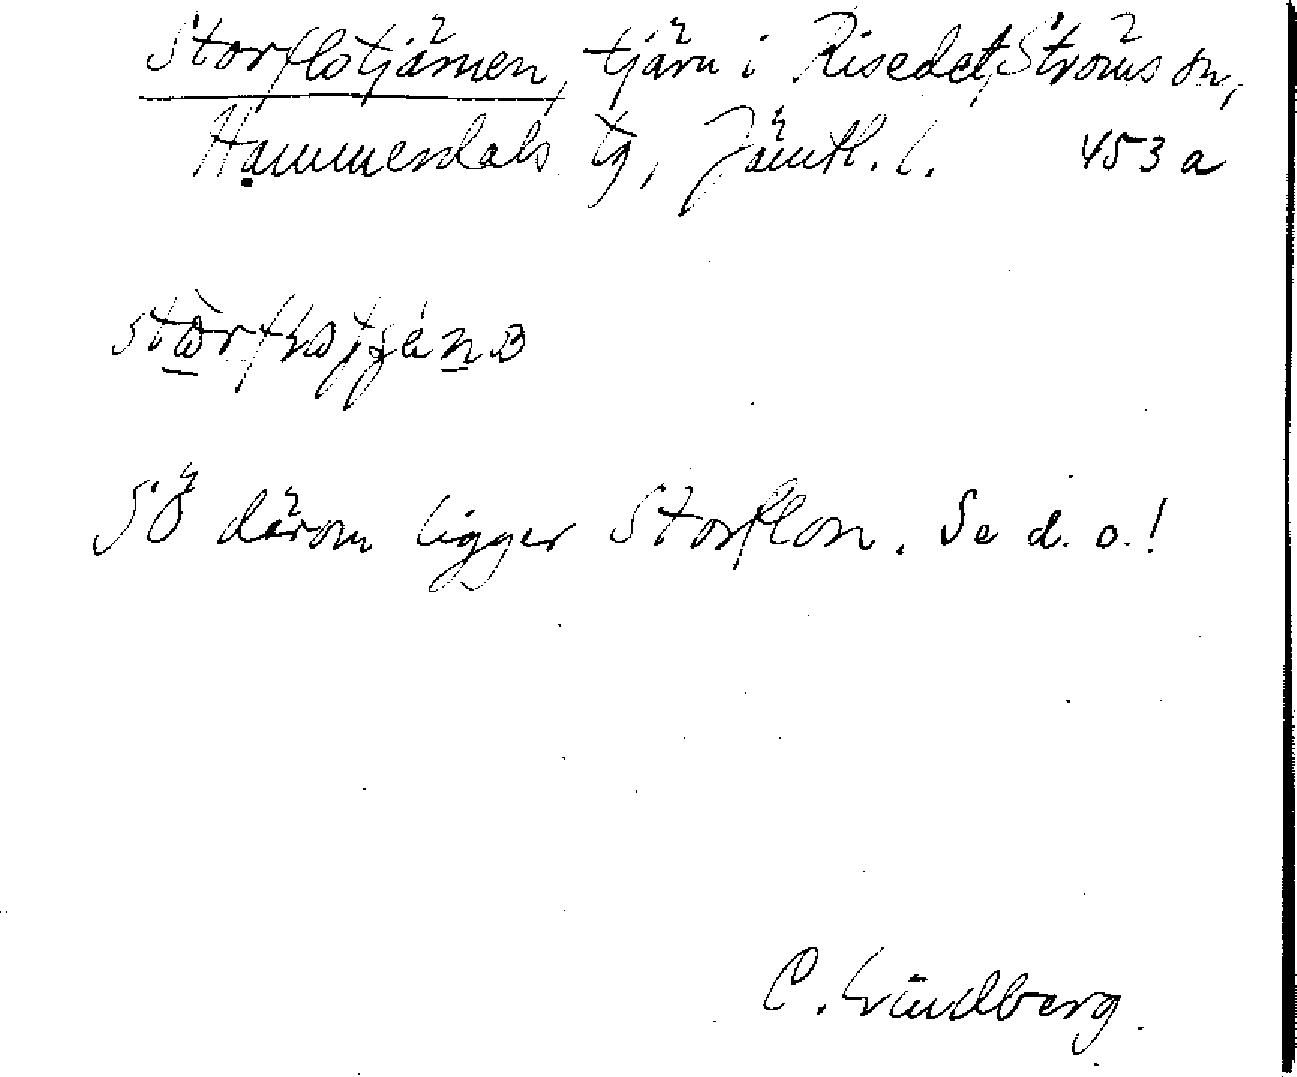 Storflotjärnen, tjärn i Risedet, Ströms sn,
Hammerdals tg, Jämtl. l. 453 a
Sö därom ligger Storflon. Se d. o.!
C. Lindberg.